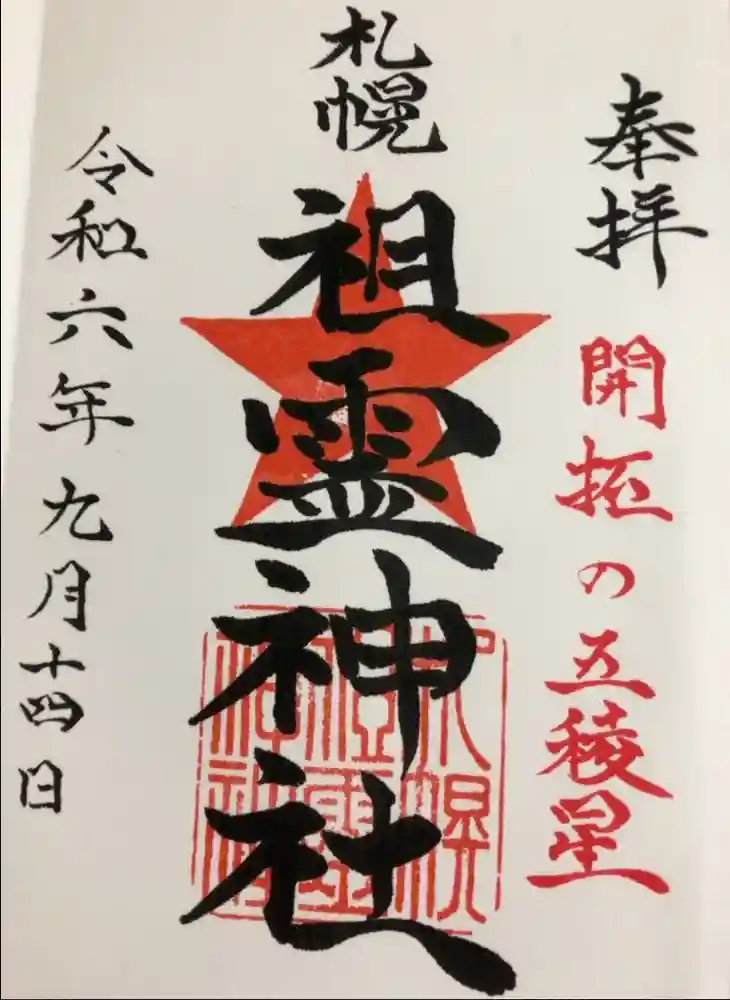 奉拝
開拓の五稜星
札幌
祖霊神社
札幌
祖霊
神社
令和六年九月十四日